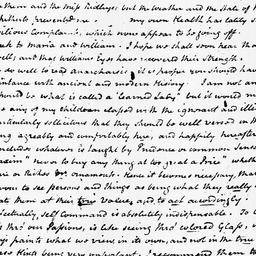 them and the Miss Ridleys but the weather and the state of th
prevented me. my own Health has lately s
bilious Complaint, which now appears to be going off
to maria and william. I hope we shall soon hear that
well; and that william Eyes have recovered their strength.
do well to read anacharsis; it is proper you should have
with ancient and modern History. I am not an
should be what is called a 'learned Lady' but it would m
any of my children classed with the ignorant and illi
particularly solicitous that they should be well versed in th
agreeably and comfortably here, and happily hereafter
includes whatever is taught by Prudence or common Sense
maxim "never to buy any thing at too great a Price" wheth
in or Riches or ornament. Hence it becomes necessary, that
to see persons and things as being what they really
rate them at their true Value, and to act accordingly.
effectually, self Command is absolutely indispensable. To
thro' our Passions, is like seeing thro' colored Glass,
paints what we view in its own, and not in the true
being very unpleasant. I recommend them to